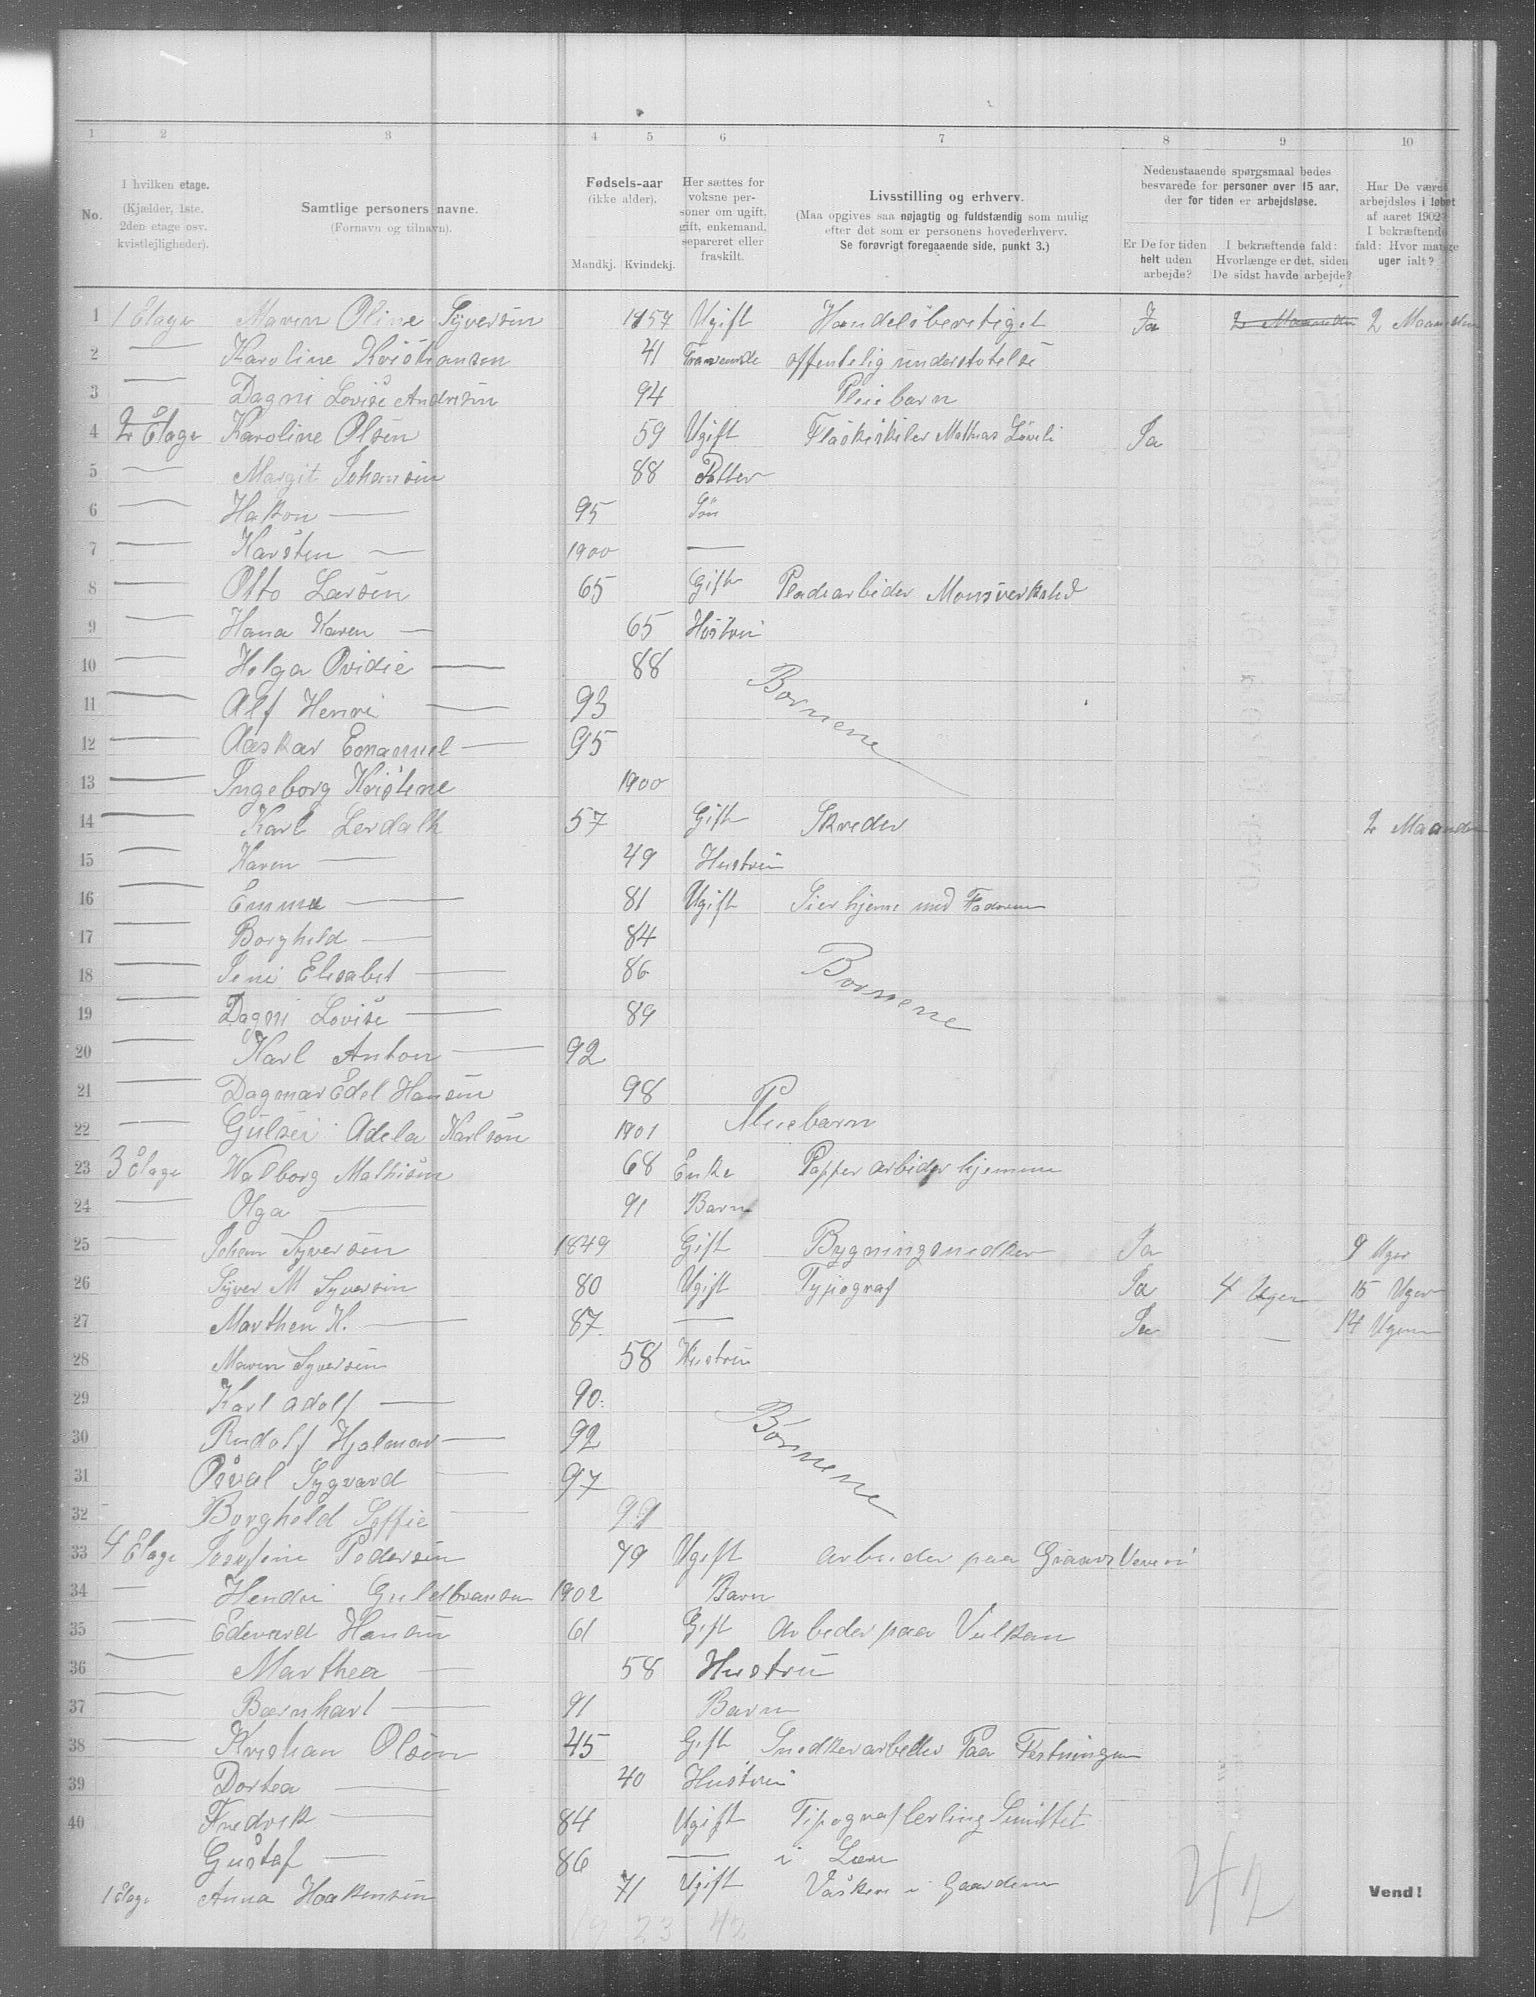 1 2 3 4 5 6 7 8 9 10
No.
I hvilken etage.
(Kjælder, 1ste.
2den etage osv.
kvistlejligheder).
Samtlige personers navne.
(Fornavn og tilnavn).
Fødsels-aar
(ikke alder).
Mandkj. Kvindekj.
Her sættes for
voksne per-
soner om ugift,
gift, enkemand,
separeret eller
fraskilt.
Livsstilling og erhverv.
(Maa opgives saa nøjagtig og fuldstændig som mulig
efter det som er personens hovederhverv.
Se forøvrigt foregaaende side, punkt 3.)
Nedenstaaende spørgsmaal bedes
besvarede for personer over 15 aar,
der for tiden er arbejdsløse.
Er De for tiden
helt uden
arbejde?
I bekræftende fald:
Hvorlænge er det, siden
De sidst havde arbejde?
Har De været
arbejdsløs i løbet
af aaret 1902?
I bekræftende
fald: Hvor mange
uger ialt?
1 1 Etage Maren Oline Syversen 1857 Ugift Handelsberetiget Ja 2 Maaneder 2 Maaneder
2 — Karoline Kristiansen 41 offentelig understøtelse
3 — Dagni Lovise Andresen 94 Pleiebarn
4 2 Etage Karoline Olsen 59 Ugift Flaskeskiler Mathias Ja
5 — Margit Johansen 88 Dotter
6 — Hakon — 95 Søn
7 — Karsten — 1900 —
8 — Otto Larsen 65 Gift Pladearbeider
9 — Hana Karen — 65 Hustru
10 — Helga Ovidie — 88 Børnene
11 — Alf Henri — 93
12 — Aaskar Emanuel — 95
13 — Ingeborg Kristine 1900
14 — Karl Lerdalh 57 Gift Skreder 2 Maaneder
15 — Karen — 49 Hustru
16 — Emma — 81 Ugift Sier hjeme med Faderen
17 — Borghild — 84
18 — Jeni Elisabet — 86 Børnene
19 — Dagni Lovise — 89
20 — Karl Anton — 92
21 — Dagmar Edel Hansen 98 Pleiebarn
22 — Adela Karlson 1901
23 3 Etage Walborg Mathisen 68 Enke Papperarbider hjemme
24 — Olga — 91 Barn
25 — Johan Syversen 1849 Gift Bygningsnedker Ja 9 Uger
26 Syver M Syversen 80 Ugift Typograf Ja 4 Uger 15 Uger
27 Marthen K. — 87 — Ja — 14 Ugerer
28 Maren Syversen 58 Hustru
29 Karl Adolf — 90
30 Rudolf Hjalmar — 92 Børnene
31 Osval Sygvard — 97
32 Borghild Soffie — 99
33 4 Etage Josefine Pedersen 79 Ugift Arbeider paa Veveri
34 — Hendri Guldbransen 1902 Barn
35 — Edevard Hansen 61 Gift Arbeder paa Vulkan
36 — Marthea — 58 Hustru
37 — Bærnhart — 91 Barn
38 — Kristian Olsen 45 Gift Snedkerarbeder Paa Festningen
39 Dortea — 40 Hustru
40 Fredrik — 84 Ugift Tipograf Lerling
Gustaf — 86 — i Lære
1 Etage Anna Haakensen 71 Ugift Vasken i Gaardene
42
19 23 42
Vend!